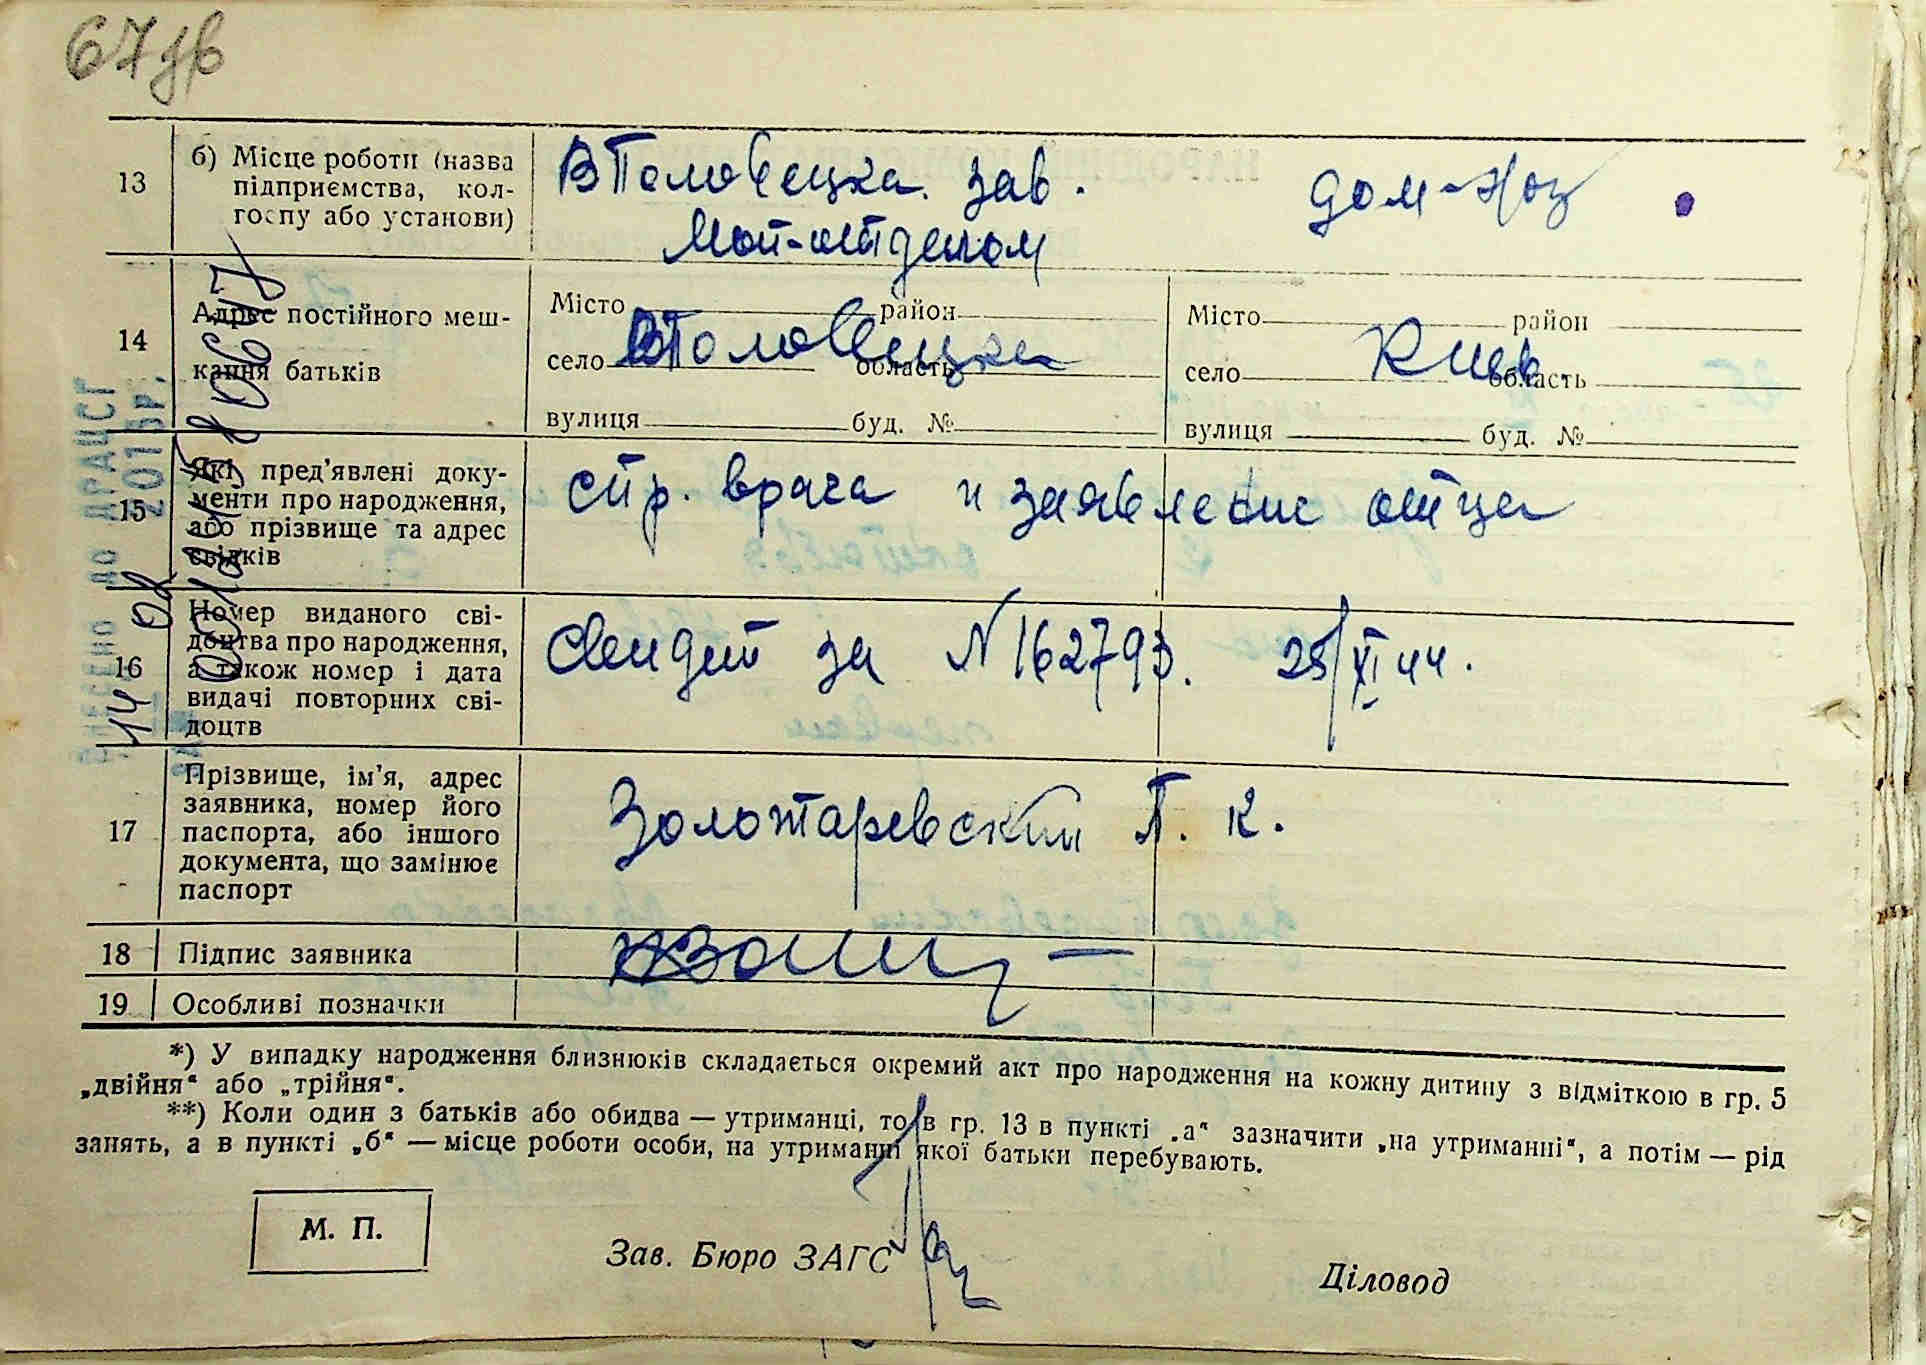 67 зв
13 б) Місце роботи (назва підприємства, колгоспу або установи)
В Половецка. зав.
Мот-отделом
дом-хоз
14 Адрес постійного мешкання батьків
Місто район
село В Половецка область
вулиця буд. №
Місто район
село Киев область
вулиця буд. №
15 Які пред'явлені документи про народження, або прізвище та адрес свідків
спр. врача и заявление отца
16 Номер виданого свідоцтва про народження, а також номер і дата видачі повторних свідоцтв
Свидет за N 162793. 25/XI 44.
17 Прізвище, ім'я, адрес заявника, номер його паспорта, або іншого документа, що замінює паспорт
Золотаревский П. К.
18 Підпис заявника
19 Особливі позначки
*) У випадку народження близнюків складається окремий акт про народження на кожну дитину з відміткою в гр. 5
„двійня“ або „трійня“.
**) Коли один з батьків або обидва — утриманці, то в гр. 13 в пункті „а“ зазначити „на утриманні“, а потім — рід
занять, а в пункті „б“ — місце роботи особи, на утриманні якої батьки перебувають.
М. П.
Зав. Бюро ЗАГС
Діловод
ВНЕСЕНО ДО ДРАЦСГ
14 08 2015р.